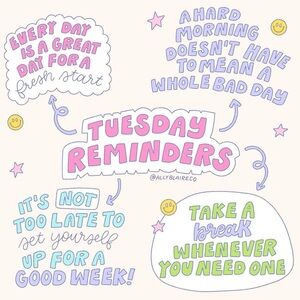 EVERY DAY
IS A GREAT
DAY FOR A
fresh start
A HARD
MORNING
DOESN'T HAVE
TO MEAN A
WHOLE BAD DAY
TUESDAY
REMINDERS
@ALLYBLAIRECO
IT'S NOT
TOO LATE TO
set yourself
UP FOR A
GOOD WEEK!
TAKE A
break
WHENEVER
YOU NEED ONE